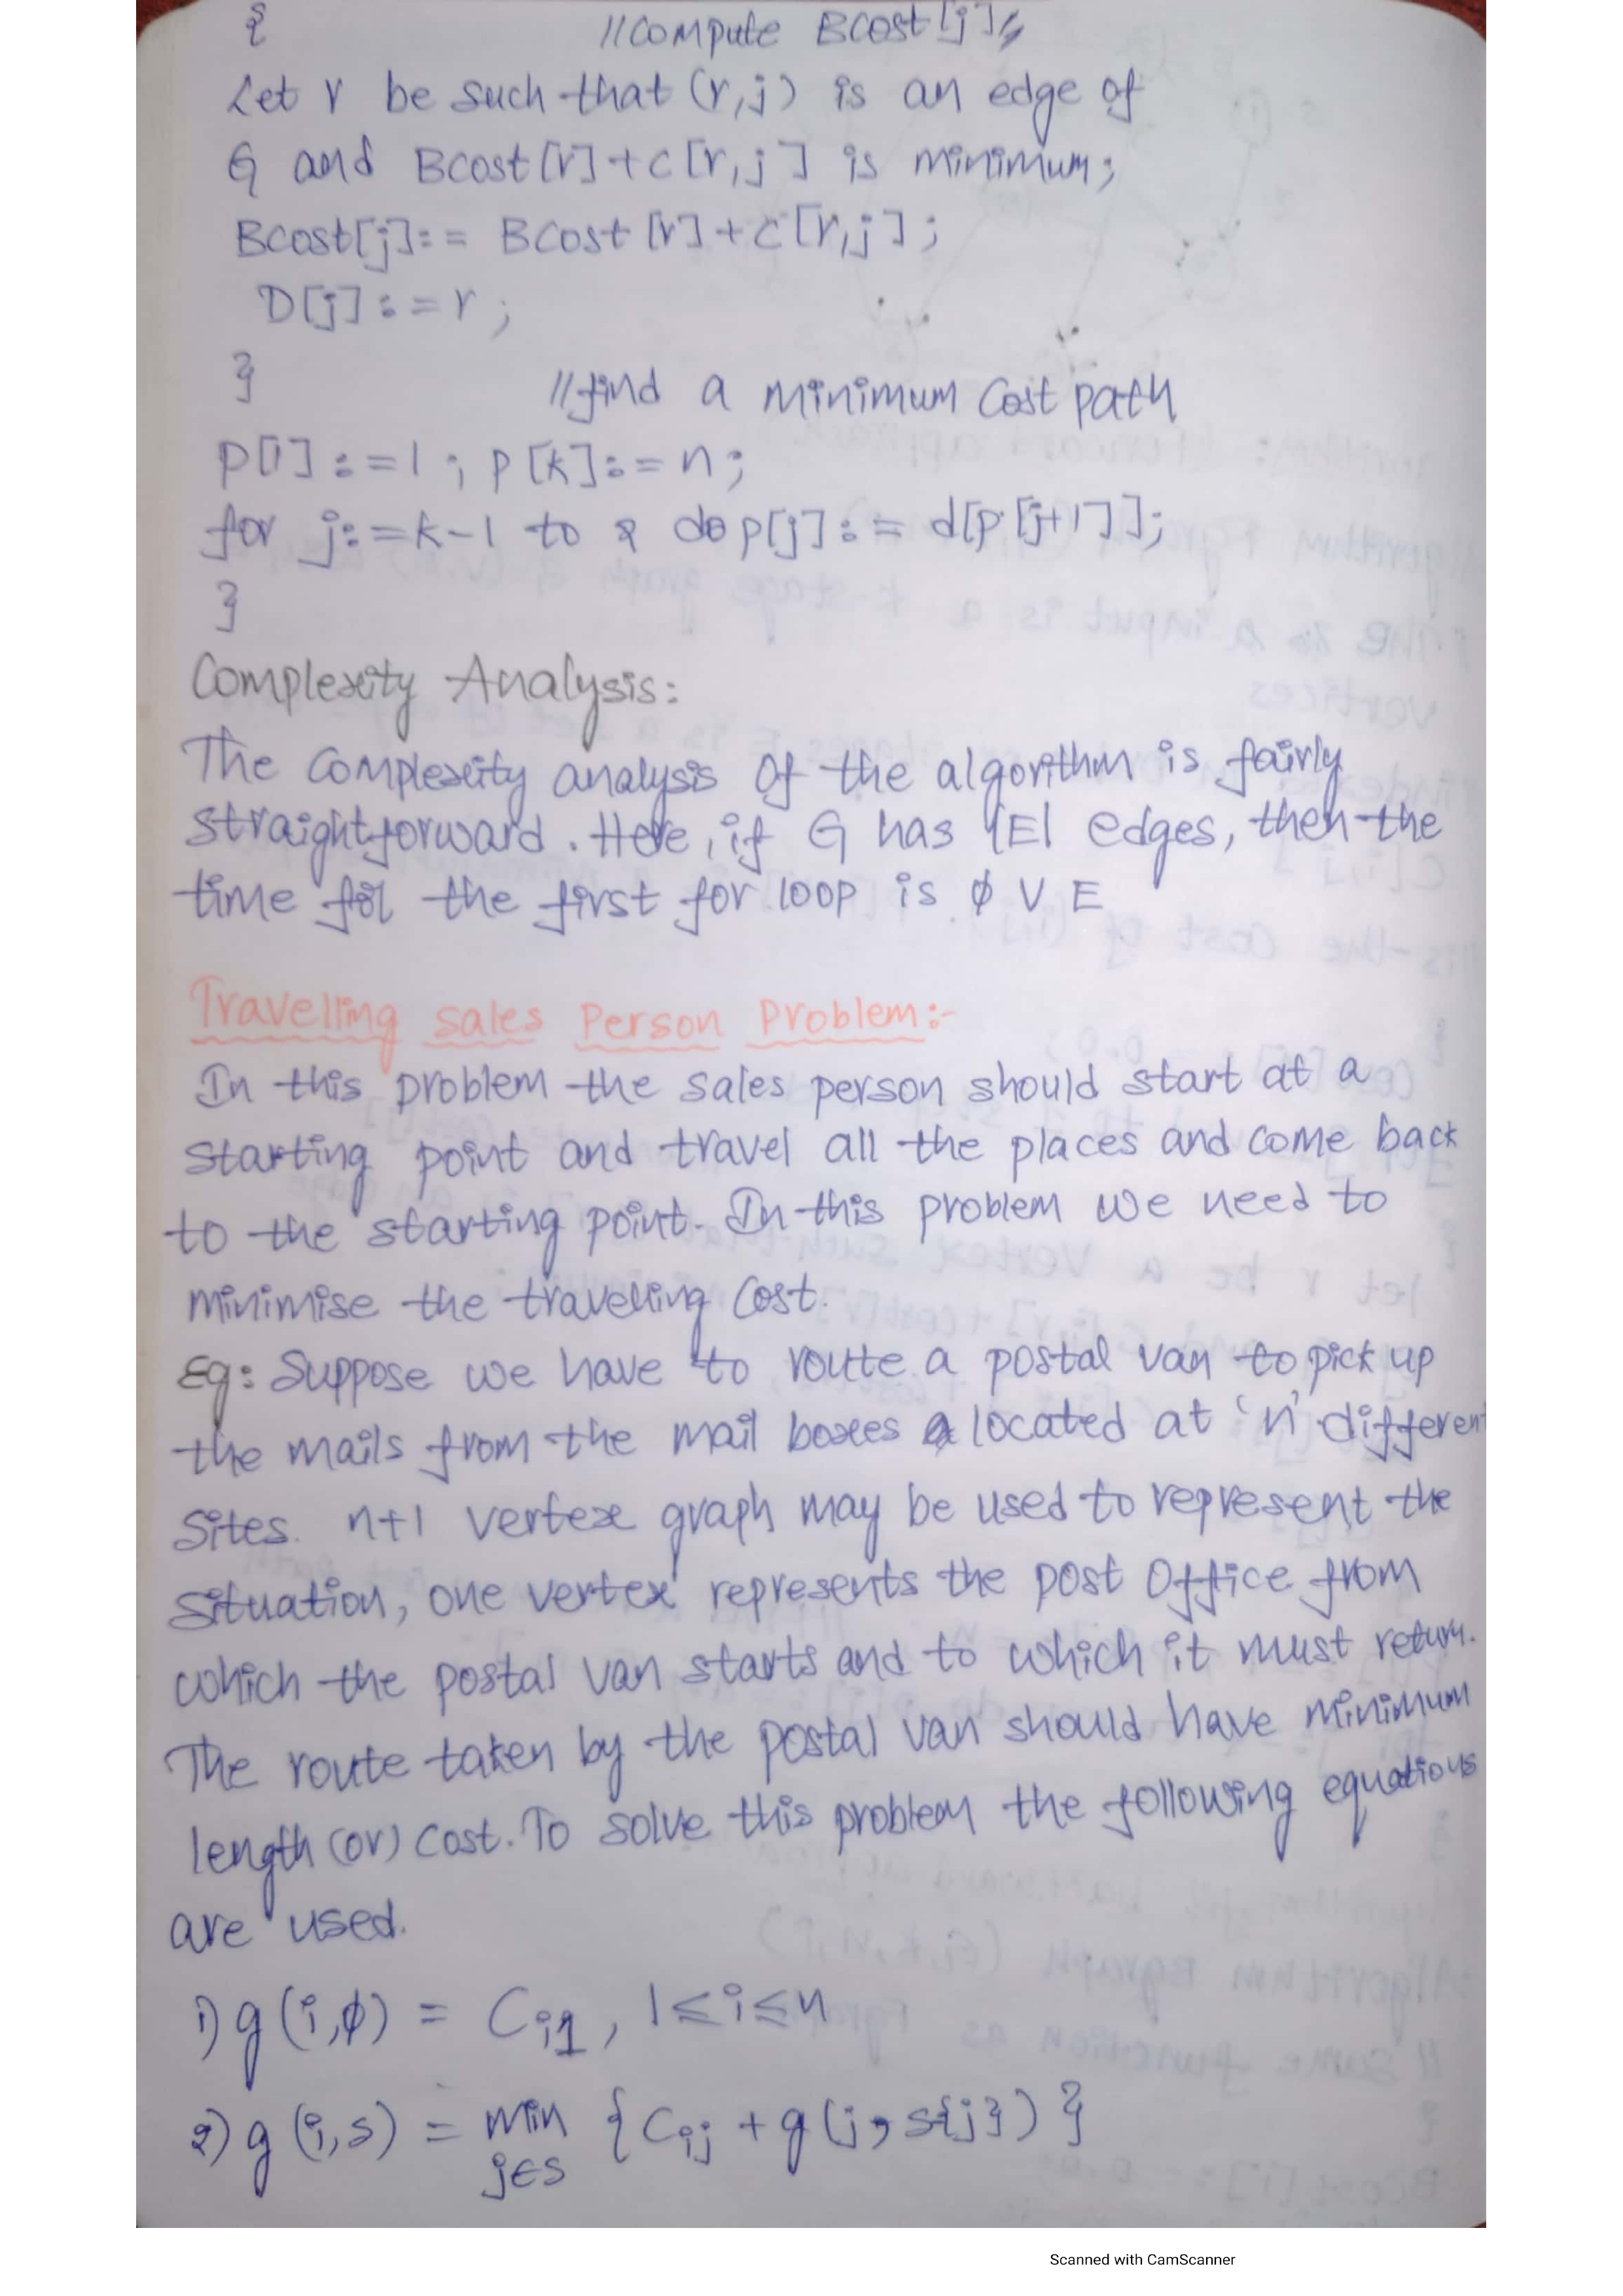 { //Compute BCost[j]
Let r be such that (r,j) is an edge of
G and BCost[r]+c[r,j] is minimum;
BCost[j]:= BCost[r]+c[r,j];
D[j]:=r;
} //find a minimum Cost path
p[1]:=1; p[k]:=n;
for j:=k-1 to 2 do p[j]:= d[p[j+1]];
}
Complexity Analysis:
The complexity analysis of the algorithm is fairly
straightforward. Here, if G has |E| edges, then the
time for the first for loop is φ V E
Travelling sales Person Problem:-
In this problem the sales person should start at a
starting point and travel all the places and come back
to the starting point. In this problem we need to
minimise the travelling cost.
Eg: Suppose we have to route a postal van to pick up
the mails from the mail boxes located at 'n' different
sites. n+1 vertex graph may be used to represent the
situation, one vertex represents the post office from
which the postal van starts and to which it must return.
The route taken by the postal van should have minimum
length (or) cost. To solve this problem the following equations
are used.
1) g(i,φ) = Ci1, 1≤i≤n
2) g(i,s) = min {Cij + g(j, s{j})}
j∈s
Scanned with CamScanner